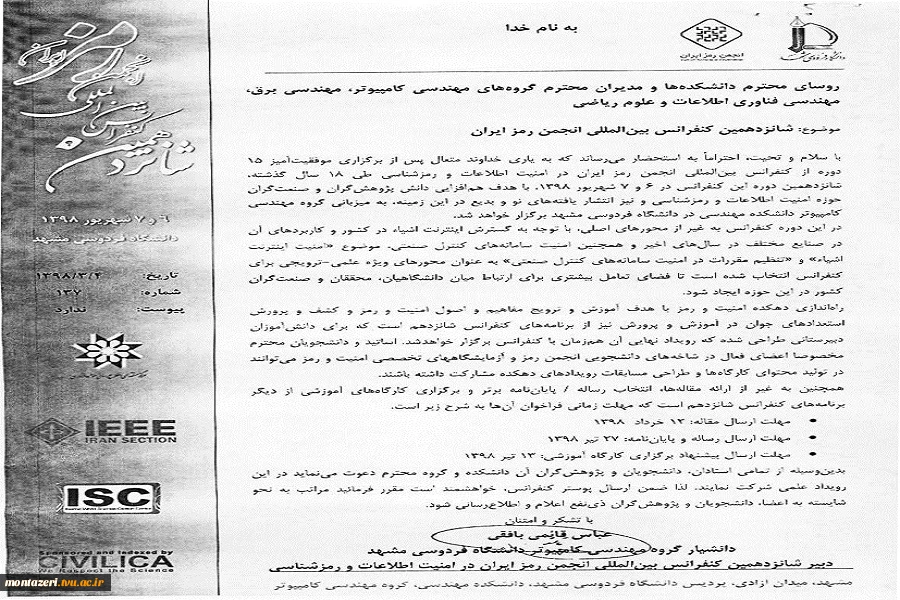 به نام خدا
انجمن رمز ایران
روسای محترم دانشکده‌ها و مدیران محترم گروه‌های مهندسی کامپیوتر، مهندسی برق،
مهندسی فناوری اطلاعات و علوم ریاضی
موضوع: شانزدهمین کنفرانس بین‌المللی انجمن رمز ایران
با سلام و تحیت، احتراماً به استحضار می‌رساند که به یاری خداوند متعال پس از برگزاری موفقیت‌آمیز ۱۵
دوره از کنفرانس بین‌المللی انجمن رمز ایران در امنیت اطلاعات و رمزشناسی طی ۱۸ سال گذشته،
شانزدهمین دوره این کنفرانس در ۶ و ۷ شهریور ۱۳۹۸، با هدف هم‌افزایی دانش پژوهش‌گران و صنعت‌گران
حوزه امنیت اطلاعات و رمزشناسی و نیز انتشار یافته‌های نو و بدیع در این زمینه، به میزبانی گروه مهندسی
کامپیوتر دانشکده مهندسی در دانشگاه فردوسی مشهد برگزار خواهد شد.
در این دوره کنفرانس به غیر از محورهای اصلی، با توجه به گسترش اینترنت اشیاء در کشور و کاربردهای آن
در صنایع مختلف در سال‌های اخیر و همچنین امنیت سامانه‌های کنترل صنعتی، موضوع «امنیت اینترنت
اشیاء» و «تنظیم مقررات در امنیت سامانه‌های کنترل صنعتی» به عنوان محورهای ویژه علمی-ترویجی برای
کنفرانس انتخاب شده است تا فضای تعامل بیشتری برای ارتباط میان دانشگاهیان، محققان و صنعت‌گران
کشور در این حوزه ایجاد شود.
راه‌اندازی دهکده امنیت و رمز با هدف آموزش و ترویج مفاهیم و اصول امنیت و رمز و کشف و پرورش
استعدادهای جوان در آموزش و پرورش نیز از برنامه‌های کنفرانس شانزدهم است که برای دانش‌آموزان
دبیرستانی طراحی شده که رویداد نهایی آن هم‌زمان با کنفرانس برگزار خواهدشد. اساتید و دانشجویان محترم
مخصوصا اعضای فعال در شاخه‌های دانشجویی انجمن رمز و آزمایشگاههای تخصصی امنیت و رمز می‌توانند
در تولید محتوای کارگاه‌ها و طراحی مسابقات رویدادهای دهکده مشارکت داشته باشند.
همچنین به غیر از ارائه مقاله‌ها، انتخاب رساله / پایان‌نامه برتر و برگزاری کارگاه‌های آموزشی از دیگر
برنامه‌های کنفرانس شانزدهم است که مهلت زمانی فراخوان آن‌ها به شرح زیر است.
• مهلت ارسال مقاله: ۱۲ خرداد ۱۳۹۸
• مهلت ارسال رساله و پایان‌نامه: ۲۷ تیر ۱۳۹۸
• مهلت ارسال پیشنهاد برگزاری کارگاه آموزشی: ۱۳ تیر ۱۳۹۸
بدین‌وسیله از تمامی استادان، دانشجویان و پژوهش‌گران آن دانشکده و گروه محترم دعوت می‌نماید در این
رویداد علمی شرکت نمایند. لذا ضمن ارسال پوستر کنفرانس، خواهشمند است مقرر فرمائید مراتب به نحو
شایسته به اعضا، دانشجویان و پژوهش‌گران ذی‌نفع اعلام و اطلاع‌رسانی شود.
با تشکر و امتنان
عباس قائمی بافقی
دانشیار گروه مهندسی کامپیوتر دانشگاه فردوسی مشهد
دبیر شانزدهمین کنفرانس بین‌المللی انجمن رمز ایران در امنیت اطلاعات و رمزشناسی
مشهد، میدان آزادی، پردیس دانشگاه فردوسی مشهد، دانشکده مهندسی، گروه مهندسی کامپیوتر
شانزدهمین
کنفرانس
بین المللی
انجمن
رمز ایران
۶ و ۷ شهریور ۱۳۹۸
دانشگاه فردوسی مشهد
تاریخ: ۱۳۹۸/۳/۲
شماره: ۱۳۷
پیوست: ندارد
IEEE
IRAN SECTION
ISC
Sponsored and Indexed by
CIVILICA
We Respect the Science
montazeri.tvu.ac.ir